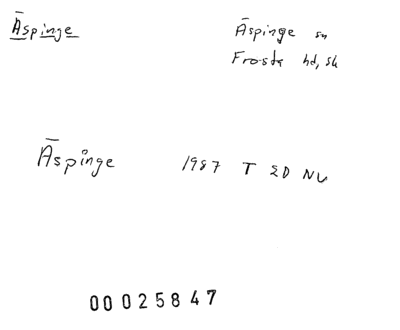 Äspinge
Äspinge sn
Frosta hd, Sk
Äspinge 1987 T 2D NV
00 025847